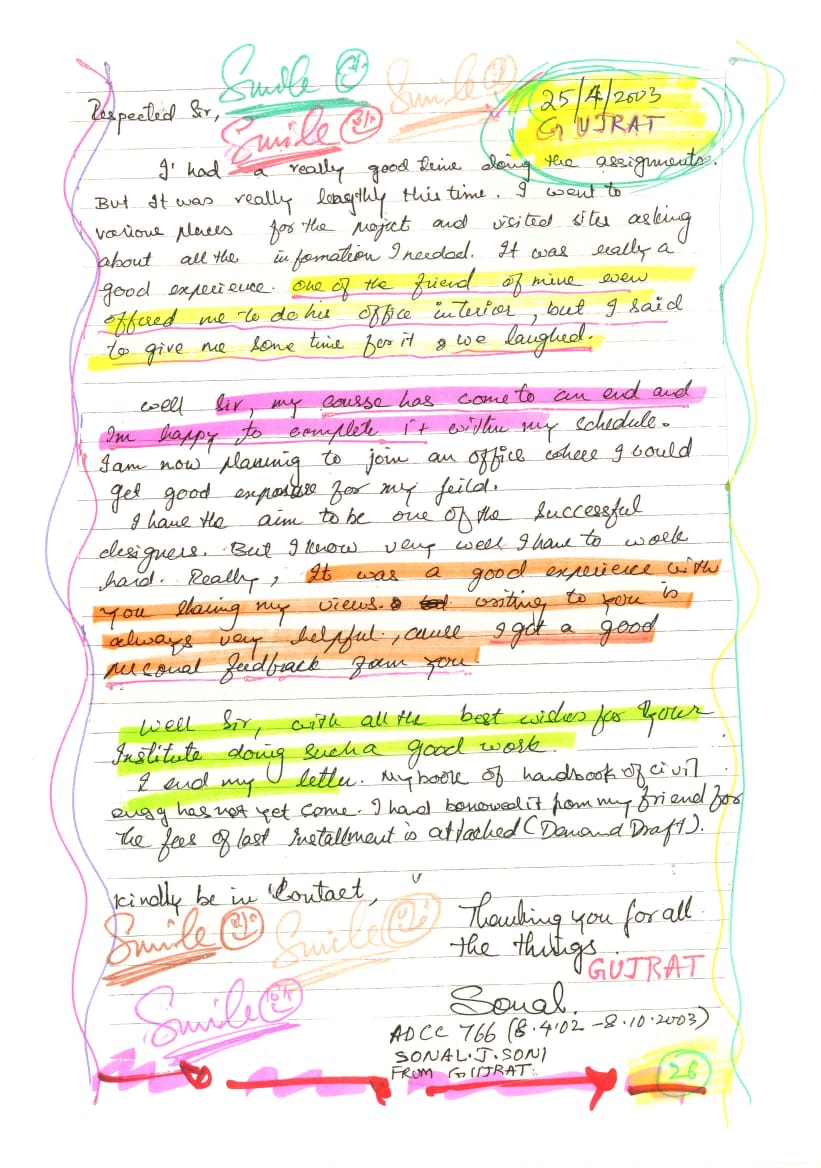 Smile
Smile
25/4/2003
Respected Sir,
Smile
GUJRAT
I had a really good time doing the assignments.
But It was really lengthly this time. I went to
various places for the project and visited sites asking
about all the information I needed. It was really a
good experience. one of the friend of mine even
offered me to do his office interior, but I said
to give me some time for it & we laughed.
Well Sir, my course has come to an end and
Im happy to complete it within my schedule.
I am now planing to join an office where I could
get good exposure for my feild.
I have the aim to be one of the successful
designers. But I know very well I have to work
hard. Really, It was a good experience with
you sharing my views. & writing to you is
always very helpful, cause I got a good
personal feedback from you
Well Sir, with all the best wishes for your
Institute doing such a good work.
I end my letter. My book of handbook of civil
engg has not yet come. I had borrowed it from my friend for
The fees of last Installment is attached (Demand Draft).
Kindly be in Contact,
Smile
Smile
Thanking you for all
the things.
GUJRAT
Smile
Sonal.
ADCC 766 (8.4.02 - 8.10.2003)
SONAL.J.SONI
FROM GUJRAT.
26